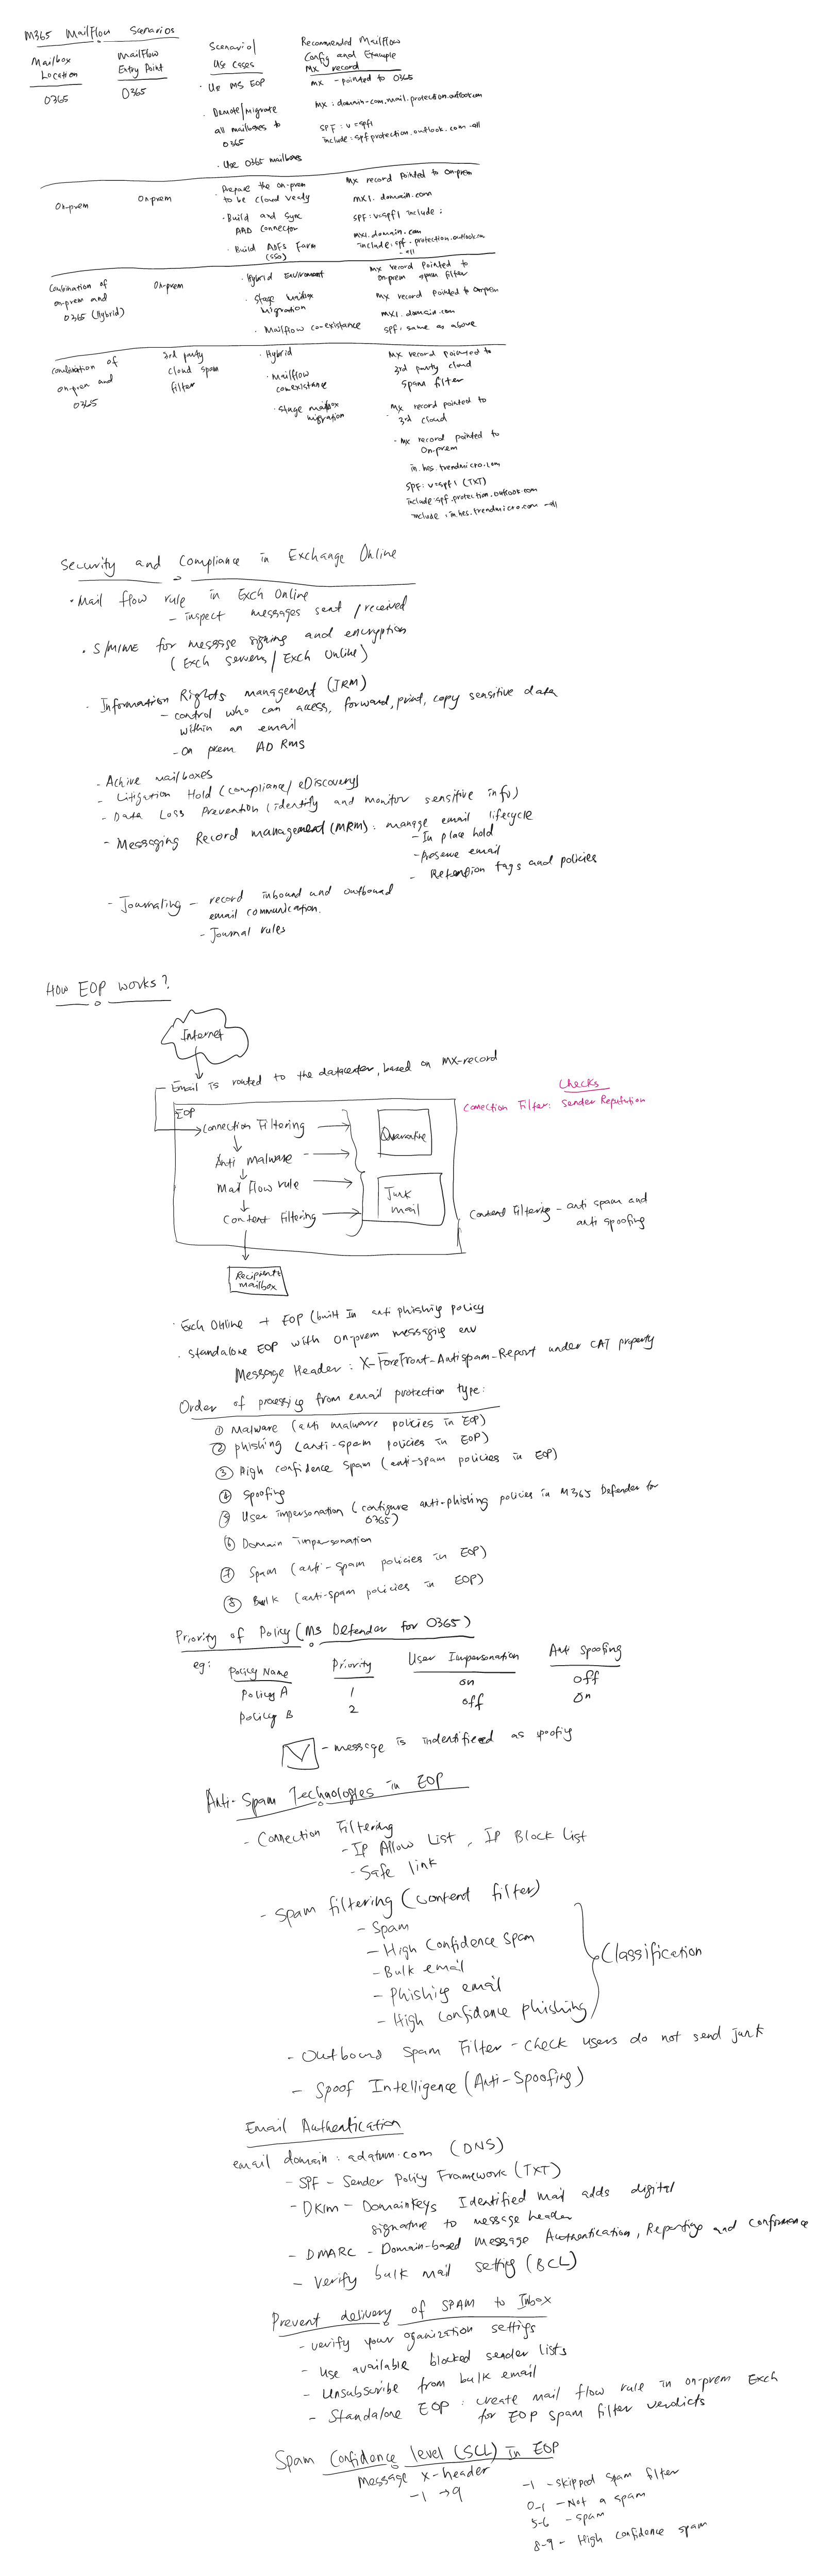 M365 MailFlow Scenarios
Mailbox Location
MailFlow Entry Point
Scenario/ Use Cases
Recommended Mailflow Config and Example
MX record
O365
O365
· Use MS EOP
· Demote/Migrate all mailboxes to O365
· Use O365 mailboxes
MX - pointed to O365
MX: domain-com.mail.protection.outlook.com
SPF: v=spf1
include:spf.protection.outlook.com -all
On-prem
On-prem
· Prepare the on-prem to be cloud ready
· Build and Sync AAD Connector
· Build ADFS Farm (SSO)
MX record pointed to on-prem
mx1.domain.com
SPF: v=spf1 include:
mx1.domain.com
include:spf.protection.outlook.com
-all
Combination of on-prem and O365 (Hybrid)
On-prem
· Hybrid Enviroment
· Stage mailbox migration
· Mailflow co-existance
MX record pointed to on-prem spam filter
MX record pointed to On-prem
mx1.domain.com
SPF: same as above
Combination of on-prem and O365
3rd party cloud spam filter
· Hybrid
· Mailflow coexistance
· Stage mailbox migration
MX record pointed to 3rd party cloud spam filter
MX record pointed to 3rd cloud
- MX record pointed to On-prem
in.hes.trendmicro.com
SPF: v=spf1 (TXT)
include:spf.protection.outlook.com
include:in.hes.trendmicro.com -all
Security and Compliance in Exchange Online
· Mail flow rule in Exch Online
- inspect messages sent/received
· S/MIME for message signing and encryption
(Exch servers/Exch Online)
· Information Rights management (IRM)
- control who can access, forward, print, copy sensitive data
within an email
- On prem AD RMS
- Achive mailboxes
- Litigation Hold (compliance/eDiscovery)
- Data Loss Prevention (identify and monitor sensitive info)
- Messaging Record management (MRM): manage email lifecycle
- In place hold
- Retension tags and policies
- Journaling - record inbound and outbound
email communication.
- Journal rules
How EOP works?
Internet
Email is routed to the datacenter, based on MX-record
Checks
Connection Filter: Sender Reputation
EOP
Connection Filtering
Quarantine
Anti malware
Mail flow rule
Junk mail
Content Filtering
Content Filtering - anti spam and
anti spoofing
Recipients mailbox
· Exch Online + EOP (built In anti phishing policy
· Standalone EOP with on-prem messaging env
Message Header: X-Forefront-Antispam-Report under CAT property
Order of processing from email protection type:
① Malware (anti malware policies in EOP)
② phishing (anti-spam policies in EOP)
③ High confidence Spam (anti-spam policies in EOP)
④ Spoofing
⑤ User impersonation (configure anti-phishing policies in M365 Defender for
O365)
⑥ Domain impersonation
⑦ Spam (anti-spam policies in EOP)
⑧ Bulk (anti-spam policies in EOP)
Priority of Policy (MS Defender for O365)
eg: Policy Name Priority User Impersonation Anti Spoofing
Policy A 1 on off
Policy B 2 off on
- message is indentifieed as spoofing
Anti-Spam Technologies in EOP
- Connection Filtering
- IP Allow List, IP Block List
- Safe link
- Spam filtering (Content filter)
- Spam
- High Confidence Spam
- Bulk email
- Phishing email
- High Confidence phishing
Classification
- Outbound Spam Filter - check users do not send junk
- Spoof Intelligence (Anti-Spoofing)
Email Authentication
email domain: adatum.com (DNS)
- SPF - Sender Policy Framework (TXT)
- DKIM - DomainKeys Identified Mail adds digital
signature to message header
- DMARC - Domain-based Message Authentication, Reporting and Conformance
- Verify bulk mail setting (BCL)
Prevent delivery of SPAM to Inbox
- verify your oganization settings
- use available blocked sender lists
- Unsubscribe from bulk email
- Standalone EOP: create mail flow rule in on-prem Exch
for EOP spam filter verdicts
Spam Confidence level (SCL) in EOP
Message x-header
-1 → 9
-1 - skipped spam filter
0-1 - Not a spam
5-6 - spam
8-9 - High confidence spam